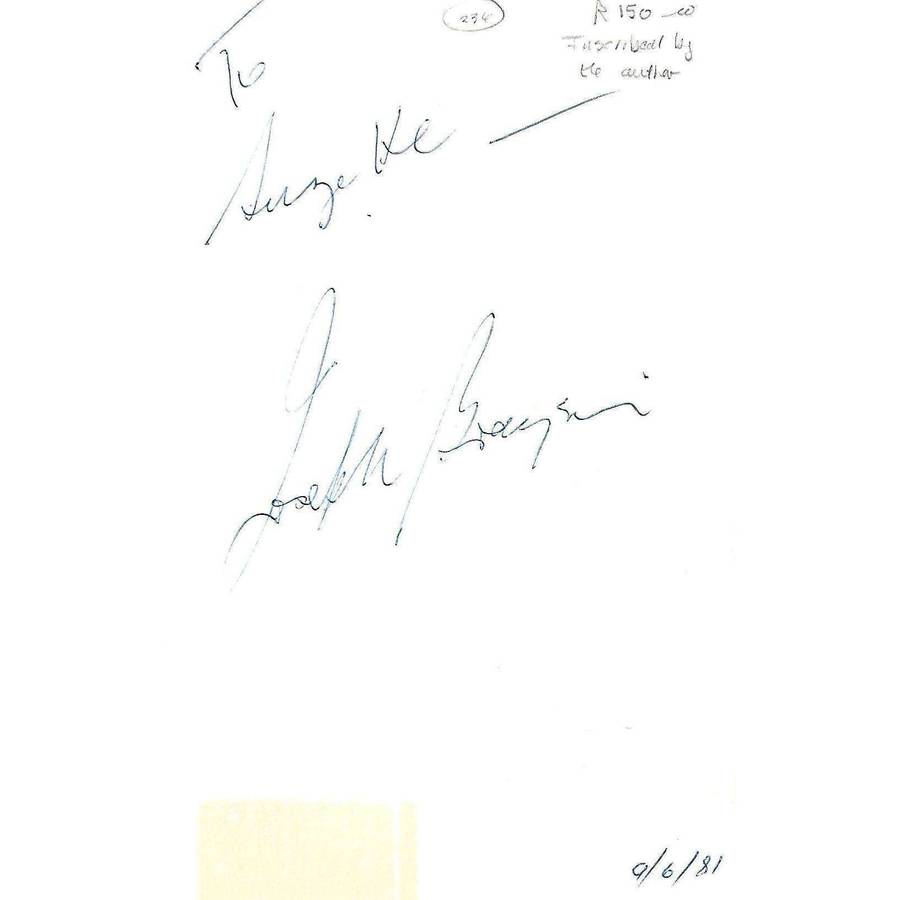 234
R 150-00
Inscribed by
the author
To
Suzette —
Joseph
9/6/81